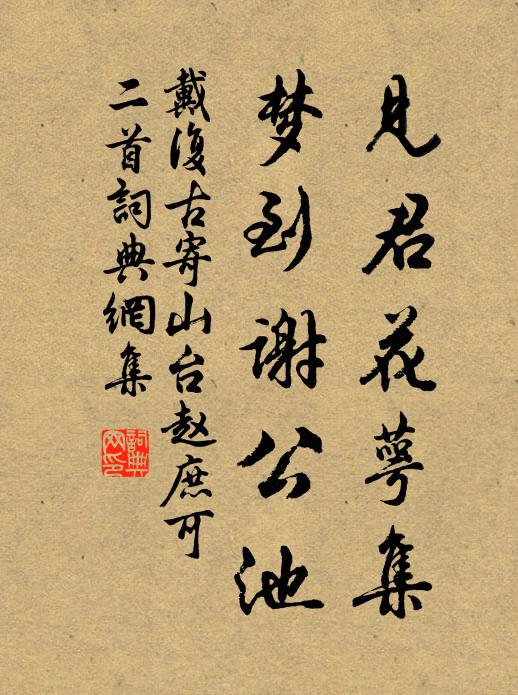 见君花萼集
梦到谢公池
戴復古寄山台赵庶可
二首詞典網集
詞典
网印